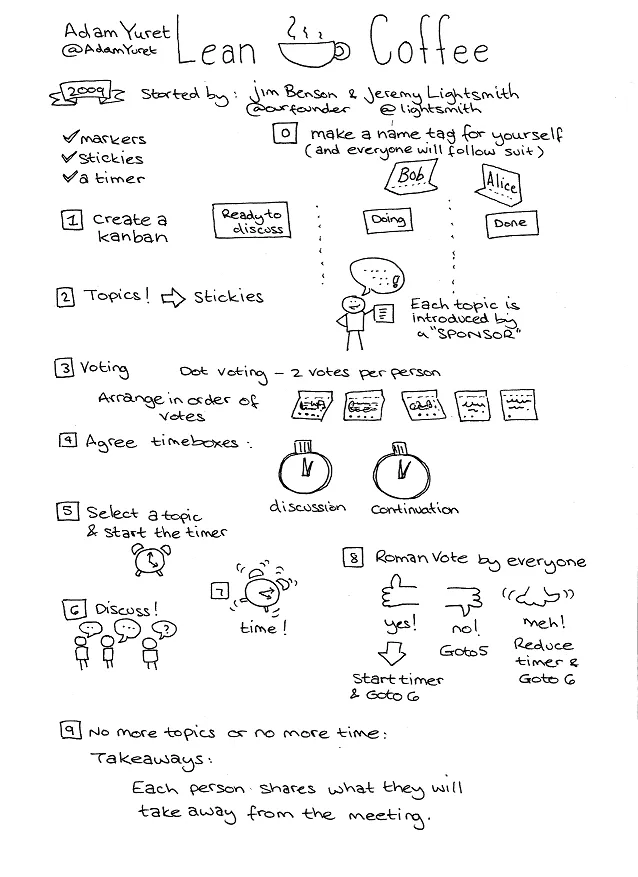 Adam Yuret
@AdamYuret
Lean Coffee
2009 Started by: Jim Benson & Jeremy Lightsmith
@ourfounder @lightsmith
markers
stickies
a timer
0 make a name tag for yourself
(and everyone will follow suit)
Bob Alice
1 Create a
kanban
Ready to
discuss
Doing
Done
2 Topics! stickies
Each topic is
introduced by
a "SPONSOR"
3 Voting Dot voting - 2 votes per person
Arrange in order of
votes
4 Agree timeboxes:
discussion continuation
5 Select a topic
& start the timer
6 Discuss!
... ?
7
time!
8 Roman Vote by everyone
yes!
Start timer
& Goto 6
no!
Goto5
meh!
Reduce
timer &
Goto 6
9 No more topics or no more time:
Takeaways:
Each person shares what they will
take away from the meeting.